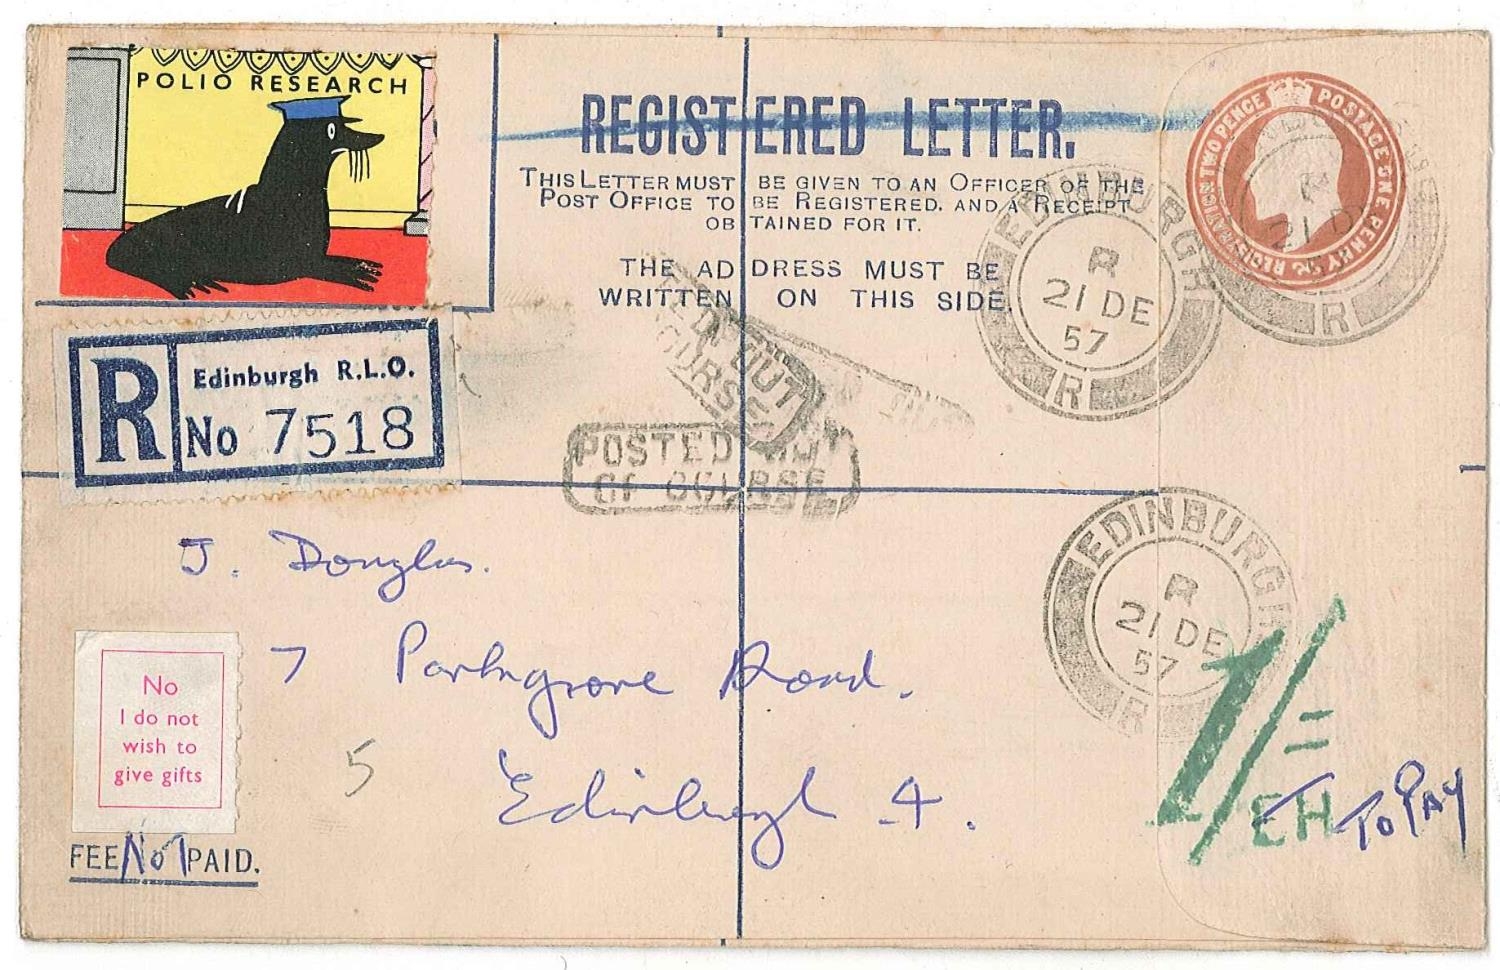 POLIO RESEARCH
REGISTERED LETTER.
THIS LETTER MUST BE GIVEN TO AN OFFICER OF THE
POST OFFICE TO BE REGISTERED, AND A RECEIPT
OBTAINED FOR IT.
THE ADDRESS MUST BE
WRITTEN ON THIS SIDE.
REGISTRATION TWO PENCE POSTAGE ONE PENNY
R
21 DE
57
R
EDINBURGH
R
21 DE
57
R
R
Edinburgh R.L.O.
No 7518
POSTED OUT
OF COURSE
POSTED
OF COURSE
EDINBURGH
R
21 DE
57
R
J. Douglas.
7 Parkgrove Road.
5
Edinburgh 4.
No
I do not
wish to
give gifts
FEE NOT PAID.
1/=
EH
TO PAY